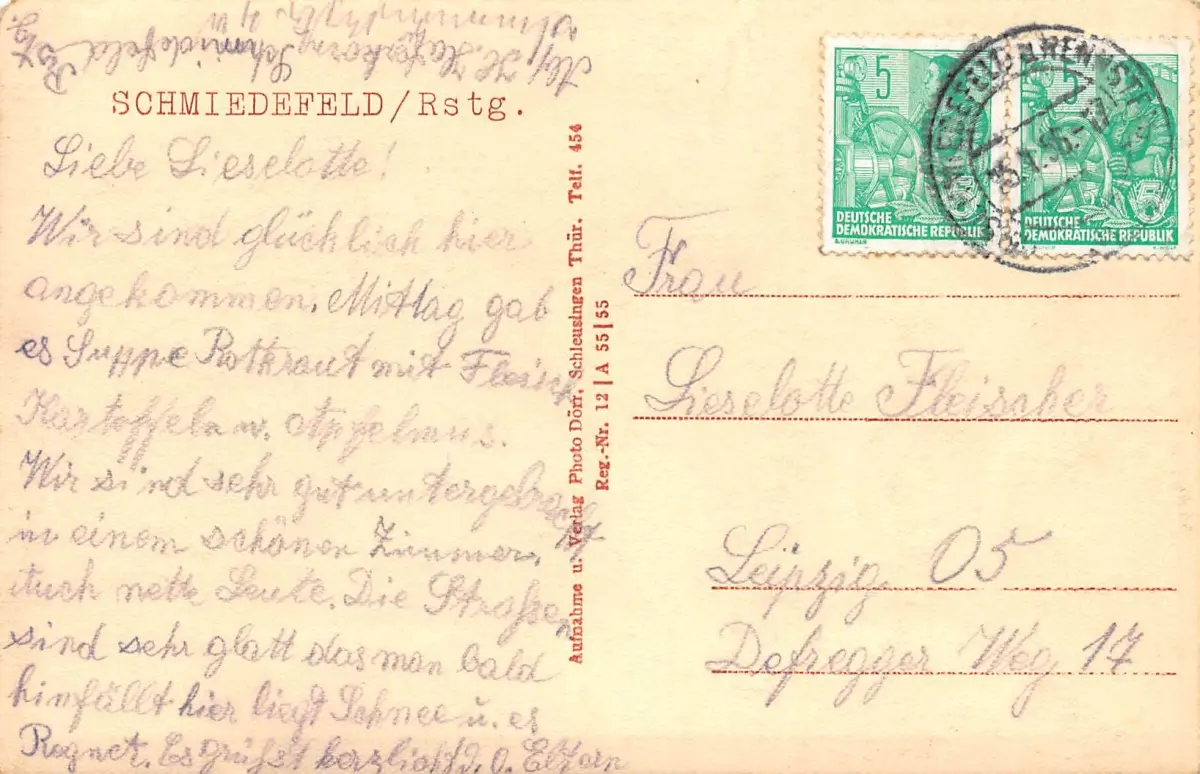 SCHMIEDEFELD/Rstg.
Liebe Lieselotte!
Wir sind glücklich hier
angekommen. Mittag gab
es Suppe Rotkraut mit Fleisch
Kartoffeln u. Apfelmus.
Wir sind sehr gut untergebracht
in einem schönen Zimmer.
Auch nette Leute. Die Straßen
sind sehr glatt das man bald
hinfällt hier liegt Schnee u. es
Regnet. Es grüßt herzlichst d. o. Eltern
Abs. H. Haferkorn Schmiedefeld Rstg.
Aufnahme u. Verlag Photo Dörr, Schleusingen Thür. Telf. 454
Reg.-Nr. 12 | A 55 | 55
5
DEUTSCHE
DEMOKRATISCHE REPUBLIK
5
DEUTSCHE
DEMOKRATISCHE REPUBLIK
Frau
Lieselotte Fleischer
Leipzig O5
Defregger Weg 17